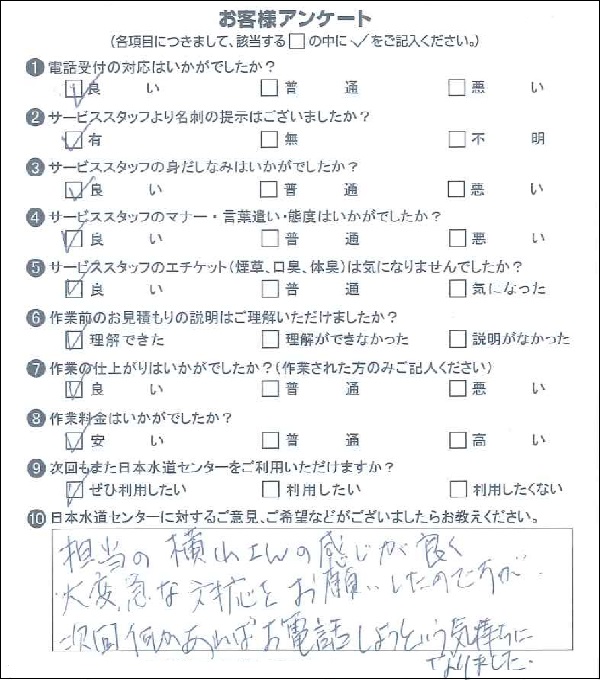 お客様アンケート
(各項目につきまして、該当する□の中に✓をご記入ください。)
❶電話受付の対応はいかがでしたか?
☑良い □普通 □悪い
❷サービススタッフより名刺の提示はございましたか?
☑有 □無 □不明
❸サービススタッフの身だしなみはいかがでしたか?
☑良い □普通 □悪い
❹サービススタッフのマナー・言葉遣い・態度はいかがでしたか?
☑良い □普通 □悪い
❺サービススタッフのエチケット(煙草、口臭、体臭)は気になりませんでしたか?
☑良い □普通 □気になった
❻作業前のお見積もりの説明はご理解いただけましたか?
☑理解できた □理解ができなかった □説明がなかった
❼作業の仕上がりはいかがでしたか?(作業された方のみご記入ください)
☑良い □普通 □悪い
❽作業料金はいかがでしたか?
☑安い □普通 □高い
❾次回もまた日本水道センターをご利用いただけますか?
☑ぜひ利用したい □利用したい □利用したくない
❿日本水道センターに対するご意見、ご希望などがございましたらお教えください。
担当の横山さんの感じが良く
大変急な対応をお願いしたのですが
次回何かあればお電話しようという気持ちに
なりました。